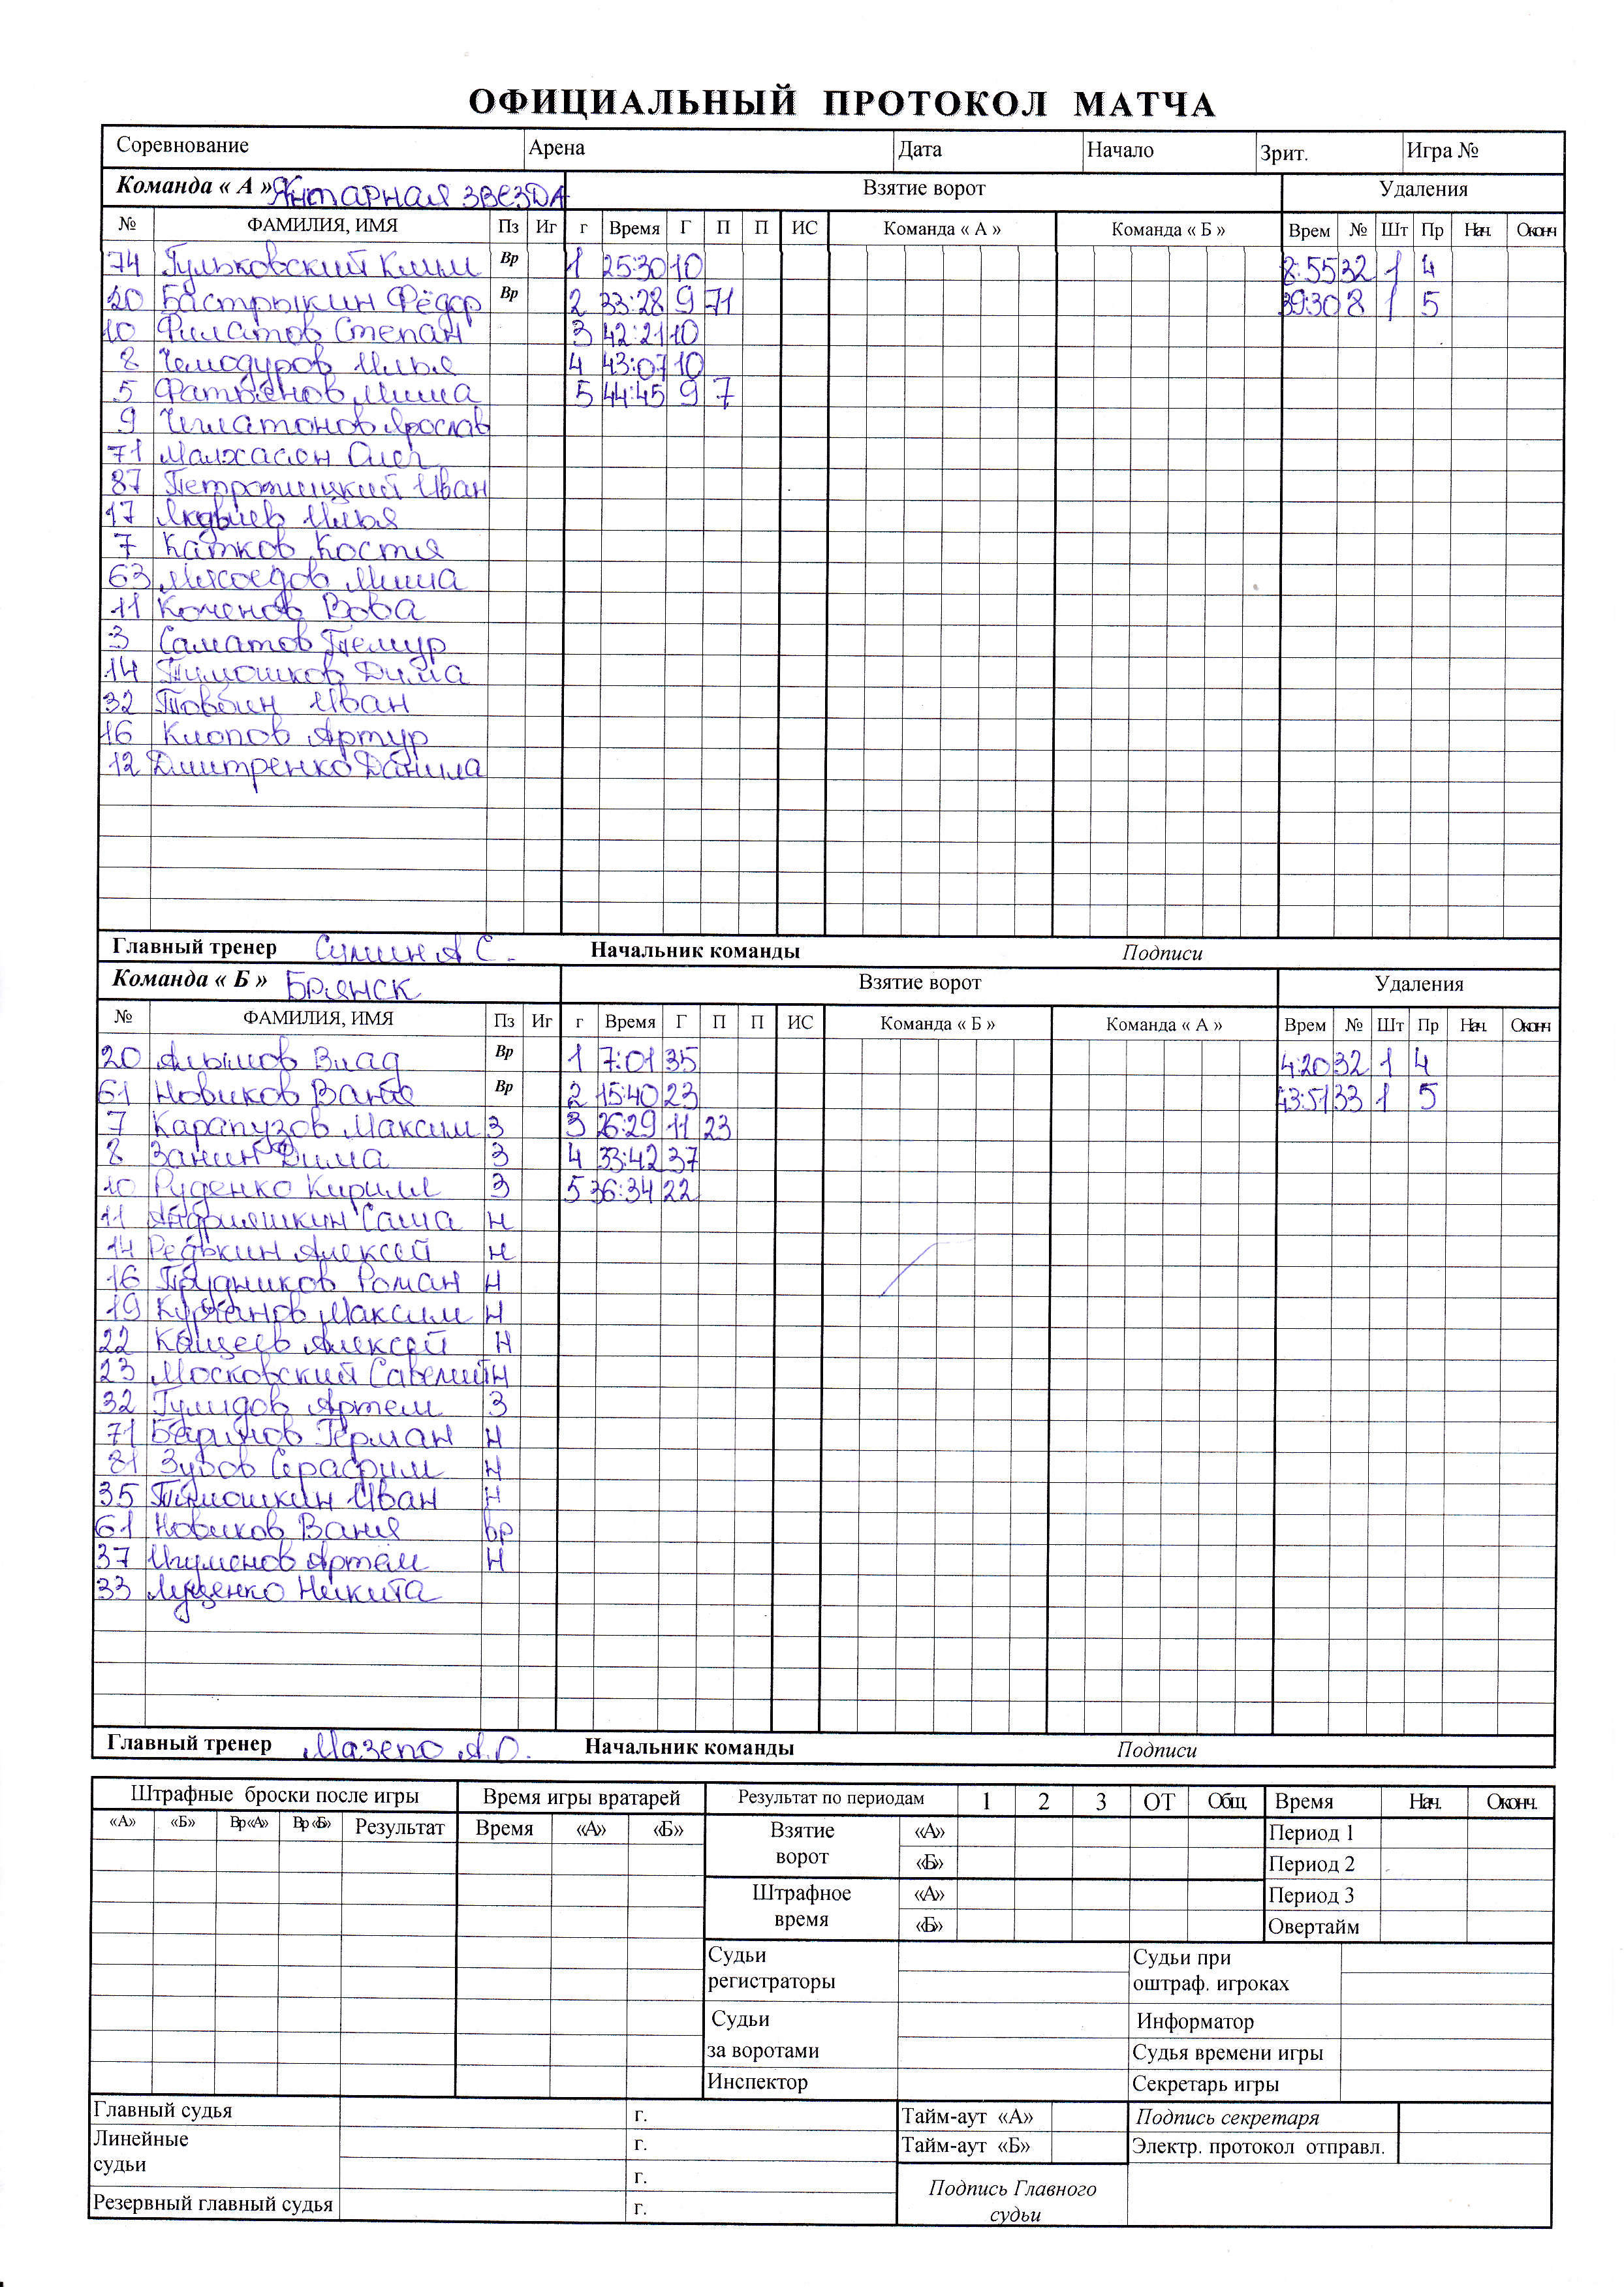 ОФИЦИАЛЬНЫЙ ПРОТОКОЛ МАТЧА
Соревнование Арена Дата Начало Зрит. Игра №
Команда « А » Янтарная звезда Взятие ворот Удаления
№ ФАМИЛИЯ, ИМЯ Пз Иг г Время Г П П ИС Команда « А » Команда « Б » Врем № Шт Пр Нач. Оконч
74 Гульковский Клим Вр 1 25:30 10 8:55 32 1 4
20 Бастрыкин Фёдор Вр 2 33:28 9 71 39:30 8 1 5
10 Филатов Степан 3 42:21 10
8 Чемодуров Илья 4 43:07 10
5 Фатьянов Миша 5 44:45 9 7
9 Ярослав
71 Малхасян Олег
87 Иван
17 Илья
7 Катков Костя
63 Мясоедов Миша
11 Коченов Вова
3 Саматов Темур
14 Тимошков Дима
32 Товбин Иван
16 Клопов Артур
12 Дмитренко Данила
Главный тренер Сумин А С. Начальник команды Подписи
Команда « Б » Брянск Взятие ворот Удаления
№ ФАМИЛИЯ, ИМЯ Пз Иг г Время Г П П ИС Команда « Б » Команда « А » Врем № Шт Пр Нач. Оконч
20 Алымов Влад Вр 1 7:01 35 4:20 32 1 4
61 Новиков Ваня Вр 2 15:40 23 13:51 33 1 5
7 Карапузов Максим З 3 26:29 11 23
8 Занин Дима З 4 33:42 37
10 Руденко Кирилл З 5 36:34 22
11 Андрияшкин Саша Н
14 Редькин Алексей Н
16 Прудников Роман Н
19 Курганов Максим Н
22 Кащеев Алексей Н
23 Московский Савелий Н
32 Гулидов Артем З
71 Баринов Герман Н
81 Зубов Серафим Н
35 Тимошкин Иван Н
61 Новиков Ваня вр
37 Игуменов Артём Н
33 Луценко Никита
Главный тренер Мазепо А.О. Начальник команды Подписи
Штрафные броски после игры Время игры вратарей Результат по периодам 1 2 3 ОТ Общ. Время Нач. Оконч.
«А» «Б» Вр«А» Вр«Б» Результат Время «А» «Б» Взятие ворот «А» Период 1
«Б» Период 2
Штрафное время «А» Период 3
«Б» Овертайм
Судьи регистраторы Судьи при оштраф. игроках
Судьи Информатор
за воротами Судья времени игры
Инспектор Секретарь игры
Главный судья г. Тайм-аут «А» Подпись секретаря
Линейные судьи г. Тайм-аут «Б» Электр. протокол отправл.
г. Подпись Главного
Резервный главный судья г. судьи